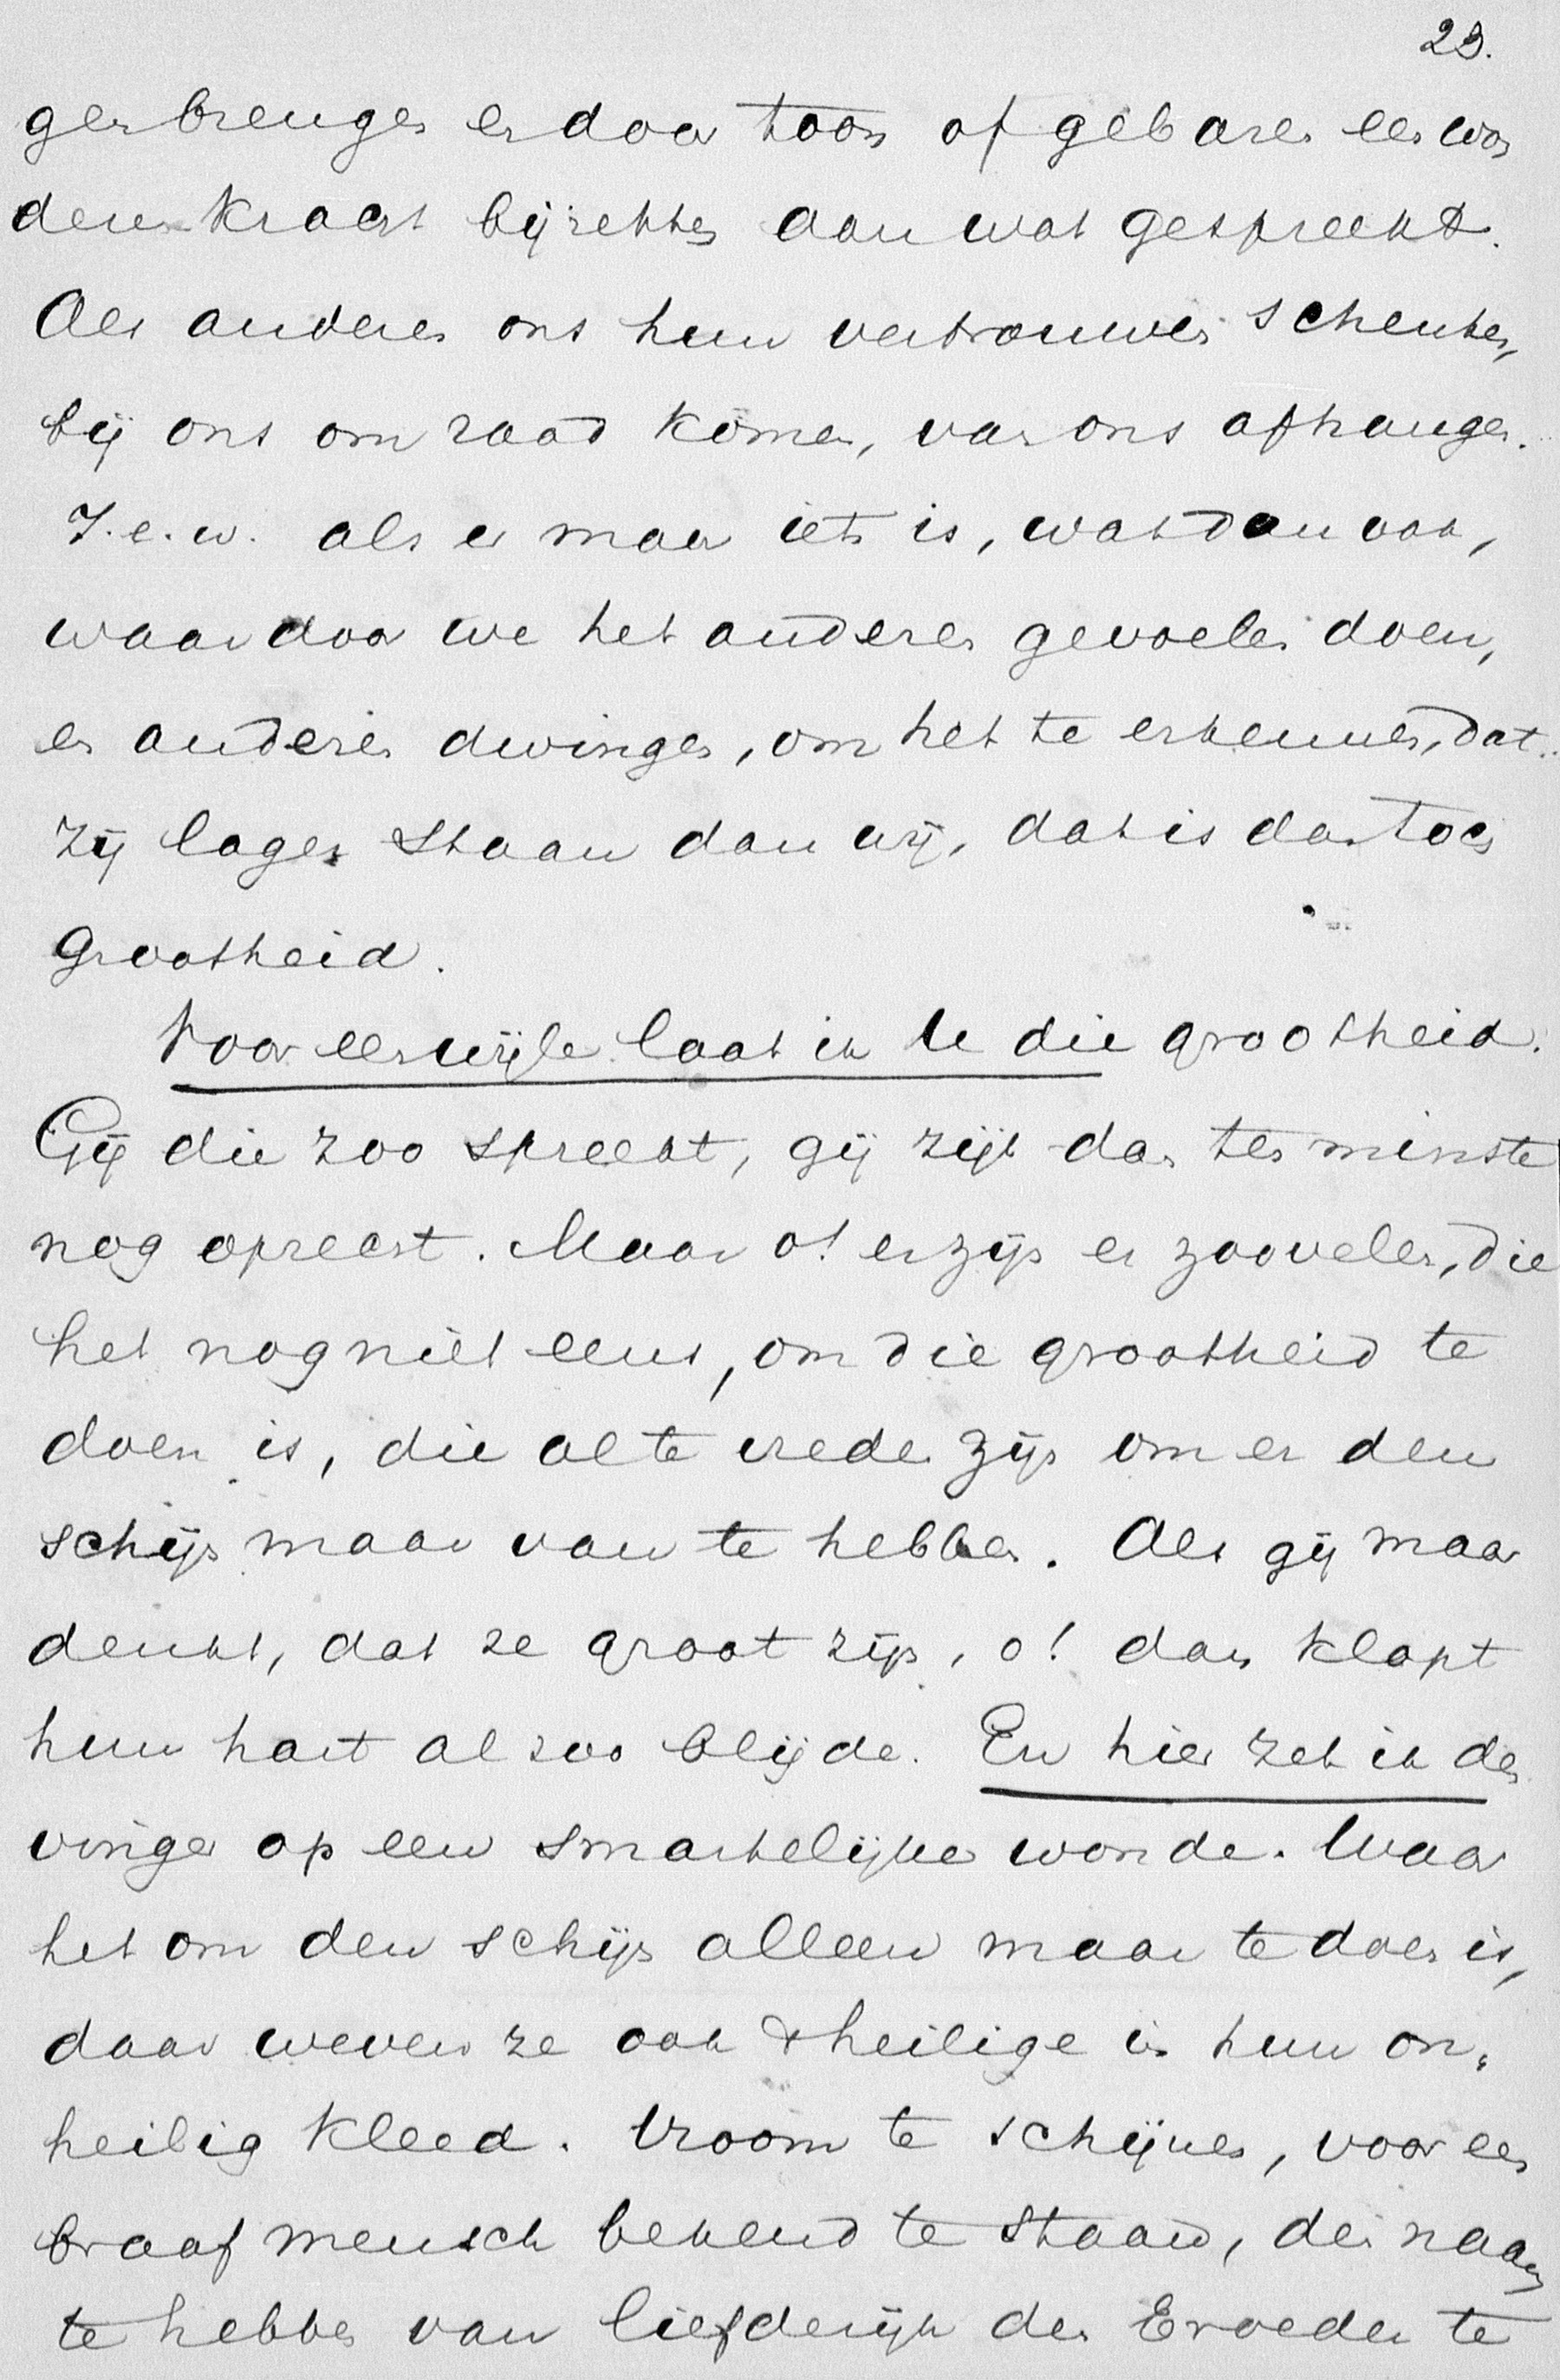 23.
gen brengen en door toon of gebaren een won
deren kracht bijzetten aan wat ge spreekt.
Als anderen ons hun vertrouwen schenken,
bij ons om raad komen, van ons afhangen.
I.e.w. als er maar iets is, wat dan ook,
waardoor we het anderen gevoelen doen,
en anderen dwingen, om het te erkennen, dat
zij lager staan dan wij, dat is dan toch
grootheid.
Voor een wijle laat ik U die grootheid.
Gij die zoo spreekt, gij zijt dan ten minste
nog oprecht. Maar o! er zijn er zoovelen, die
het nog niet eens, om die grootheid te
doen is, die al te vreden zijn om er den
schijn maar van te hebben. Als gij maar
denkt, dat ze groot zijn, o! dan klopt
hun hart al zoo blijde. En hier zet ik den
vinger op een smartelijke wonde. Waar
het om den schijn alleen maar te doen is,
daar weven ze ook 't heilige in hun on„
heilig kleed. Vroom te schijnen, voor een
braaf mensch bekend te staan, den naam
te hebben van liefderijk den Evoeden te